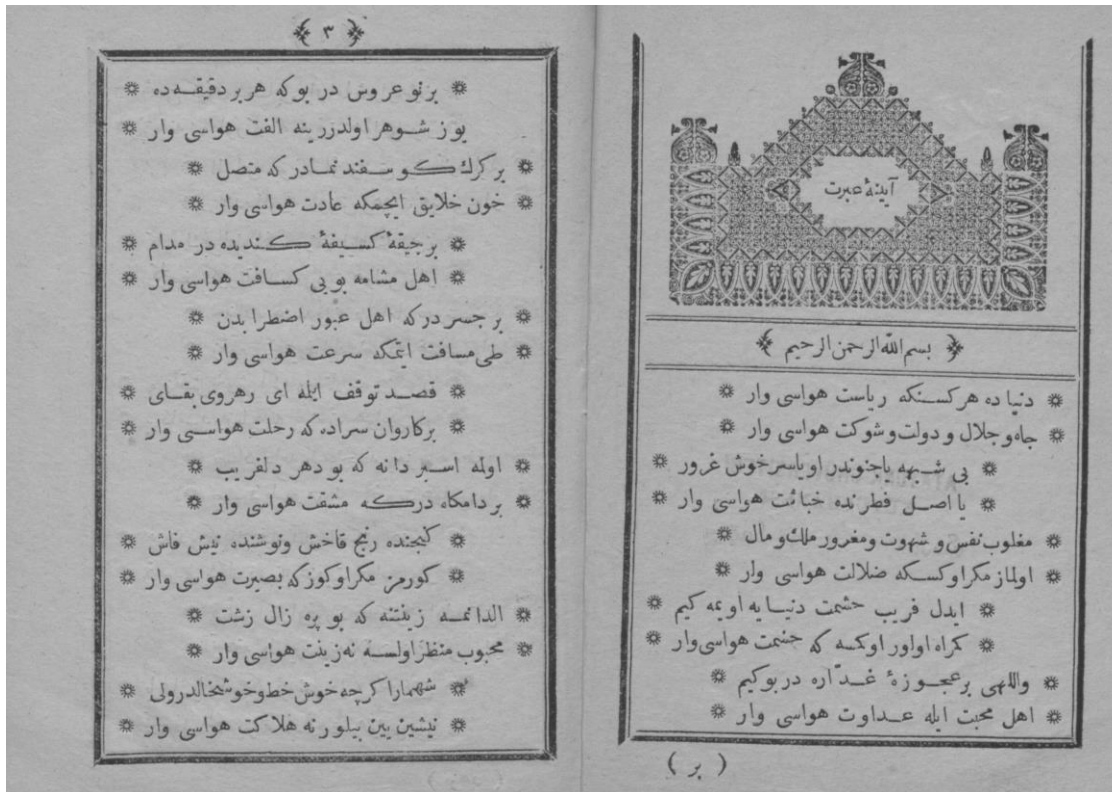 آیینهٔ عبرت
بسم الله الرحمن الرحیم
دنیا ده هر کسنکه ریاست هواسی وار
جاه و جلال و دولت و شوکت هواسی وار
بی شبهه یاجنوندر اویاسرخوش غرور
یا اصل فطرنده خباثت هواسی وار
مغلوب نفس و شهوت و مغرور ملك و مال
اولماز مکر اوکسکه ضلالت هواسی وار
ایدل فریب حشمت دنیایه اویمه کیم
کمراه اولور اوکمسه که حشمت هواسی وار
واللهی بر عجوزهٔ غدّاره در بوکیم
اهل محبت ایله عداوت هواسی وار
( بر )
٣
بر نو عروس در بوکه هر بر دقیقه ده
یوز شوهر اولدررینه الفت هواسی وار
بر کرك کوسفند نمادر که متصل
خون خلایق ایچمکه عادت هواسی وار
بر جیفهٔ کسیفهٔ کندیده در مدام
اهل مشامه بویی کسافت هواسی وار
بر جسر در که اهل عبور اضطرابدن
طی مسافت ایتمکه سرعت هواسی وار
قصد توقف ایله ای رهروی بقای
بر کاروان سراده که رحلت هواسی وار
اوله اسیر دانه که بو دهر دلفریب
بر دامکاه درکه مشقت هواسی وار
کنجنده رنج قاخش ونوشنده نیش فاش
کورمز مکر اوکوز که بصیرت هواسی وار
الدانمه زینتنه که بو پره زال زشت
محبوب منظر اولسه نه زینت هواسی وار
شهمارا کرچه خوش خط و خوشخالدر ولی
نیشین ییین بیلور نه هلاکت هواسی وار